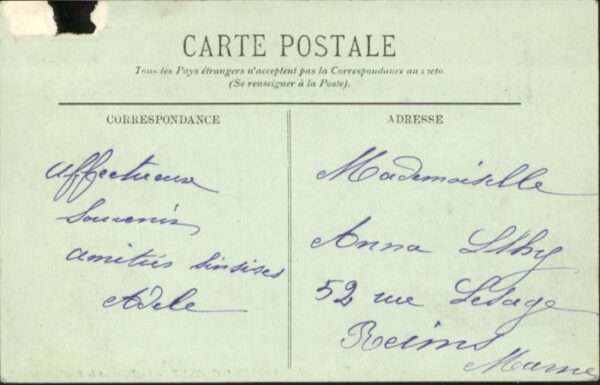 CARTE POSTALE
Tous les Pays étrangers n'acceptent pas la Correspondance au recto.
(Se renseigner à la Poste).
CORRESPONDANCE
ADRESSE
Affectueux
Souvenir
amitiés
Adele
Mademoiselle
Anna
52 rue Lesage
Reims
Marne